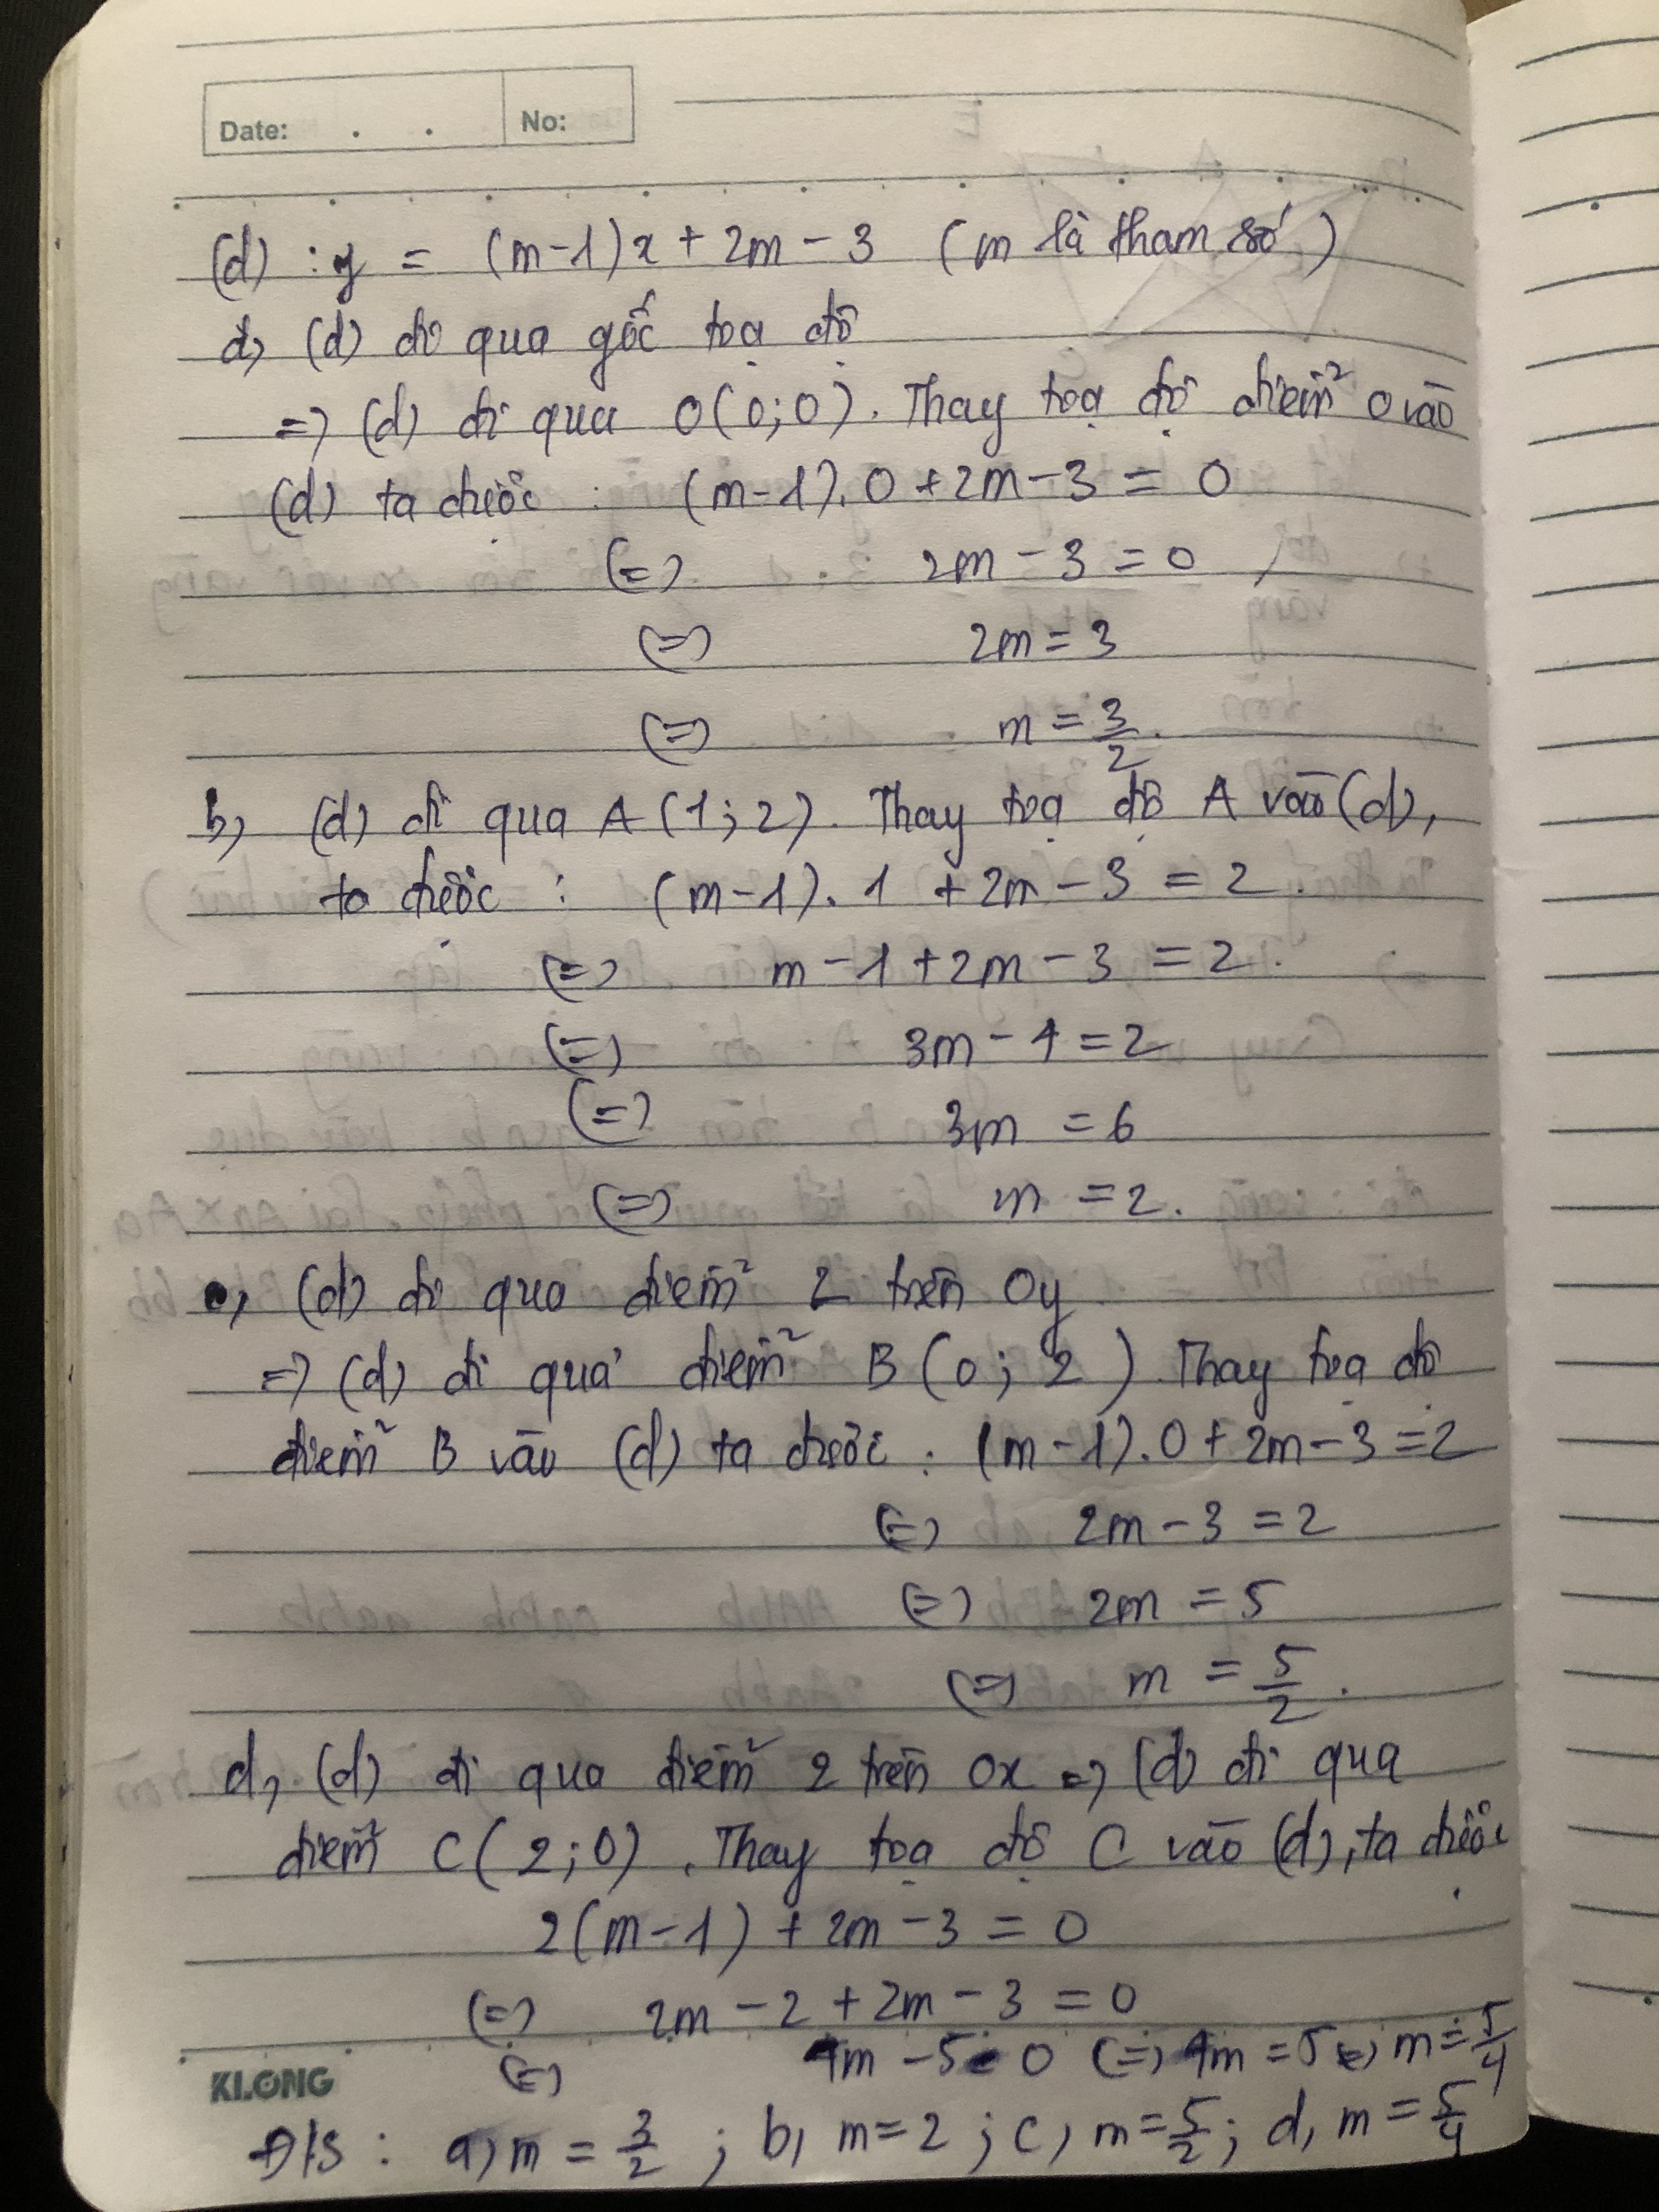 Date: . . No:
(d) : y = (m-1)x + 2m - 3 (m là tham số)
a, (d) đi qua gốc toạ độ
=> (d) đi qua O(0;0). Thay toạ độ điểm O vào
(d) ta được : (m-1).0 + 2m - 3 = 0
(=) 2m - 3 = 0
(=) 2m = 3
(=) m = 3/2.
b, (d) đi qua A(1;2). Thay toạ độ A vào (d),
ta được : (m-1).1 + 2m - 3 = 2.
(=) m - 1 + 2m - 3 = 2.
(=) 3m - 4 = 2
(=) 3m = 6
(=) m = 2.
c, (d) đi qua điểm 2 trên Oy
=> (d) đi qua điểm B(0;2) Thay toạ độ
điểm B vào (d) ta được : (m-1).0 + 2m - 3 = 2
(=) 2m - 3 = 2
(=) 2m = 5
(=) m = 5/2.
d, (d) đi qua điểm 2 trên Ox => (d) đi qua
điểm C(2;0). Thay toạ độ C vào (d), ta được
2(m-1) + 2m - 3 = 0
(=) 2m - 2 + 2m - 3 = 0
(=) 4m - 5 = 0 (=) 4m = 5 (=) m = 5/4
KLONG
Đ/S : a, m = 3/2 ; b, m = 2 ; c, m = 5/2 ; d, m = 5/4